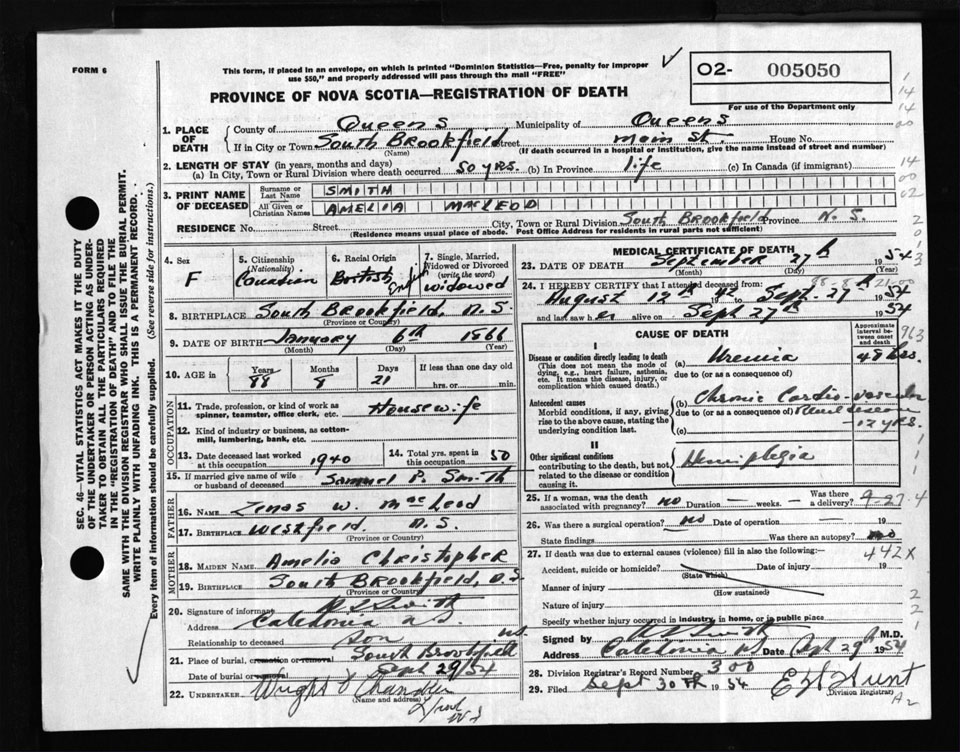 FORM 6
This form, if placed in an envelope, on which is printed "Dominion Statistics—Free, penalty for improper
use $50," and properly addressed will pass through the mail "FREE"
✓
O2- 005050
For use of the Department only
PROVINCE OF NOVA SCOTIA—REGISTRATION OF DEATH
SEC. 46—VITAL STATISTICS ACT MAKES IT THE DUTY
OF THE UNDERTAKER OR PERSON ACTING AS UNDER-
TAKER TO OBTAIN ALL THE PARTICULARS REQUIRED
IN THE "REGISTRATION OF DEATH" AND TO FILE THE
SAME WITH THE DIVISION REGISTRAR WHO SHALL ISSUE THE BURIAL PERMIT.
WRITE PLAINLY WITH UNFADING INK. THIS IS A PERMANENT RECORD.
Every item of information should be carefully supplied. (See reverse side for instructions.)
1. PLACE OF DEATH
County of Queens Municipality of Queens
If in City or Town South Brookfield Street Main St. House No.
(Name) (If death occurred in a hospital or institution, give the name instead of street and number)
2. LENGTH OF STAY (in years, months and days)
(a) In City, Town or Rural Division where death occurred 50 yrs. (b) In Province life (c) In Canada (if immigrant)
3. PRINT NAME OF DECEASED
Surname or Last Name SMITH
All Given or Christian Names AMELIA MacLEOD
RESIDENCE No. Street City, Town or Rural Division South Brookfield Province N. S.
(Residence means usual place of abode. Post Office Address for residents in rural parts not sufficient)
4. Sex
F
5. Citizenship
(Nationality)
Canadian
6. Racial Origin
British
English
7. Single, Married,
Widowed or Divorced
(write the word)
widowed
8. BIRTHPLACE South Brookfield, N.S.
(Province or Country)
9. DATE OF BIRTH January 6th 1866
(Month) (Day) (Year)
10. AGE in Years Months Days If less than one day old
88 8 21 hrs. or min.
OCCUPATION
11. Trade, profession, or kind of work as
spinner, teamster, office clerk, etc. Housewife
12. Kind of industry or business, as cotton-
mill, lumbering, bank, etc.
13. Date deceased last worked
at this occupation 1940
14. Total yrs. spent in
this occupation 50
15. If married give name of wife
or husband of deceased Samuel P. Smith
FATHER
16. Name Zenas W. MacLeod
17. Birthplace Westfield. N.S.
(Province or Country)
MOTHER
18. Maiden Name Amelia Christopher
19. Birthplace South Brookfield, N.S.
(Province or Country)
20. Signature of informant Smith
Address Caledonia N.S.
Relationship to deceased son
21. Place of burial, cremation or removal South Brookfield N.S.
Date of burial or removal Sept 29/54
22. UNDERTAKER Wright & Chandler
(Name and address)
MEDICAL CERTIFICATE OF DEATH
23. DATE OF DEATH September 27th 1954
(Month) (Day) (Year)
24. I HEREBY CERTIFY that I attended deceased from:
August 12th to Sept. 27th 1954
and last saw her alive on Sept 27th 1954
CAUSE OF DEATH
Approximate
interval be-
tween onset
and death
I
Disease or condition directly leading to death
(This does not mean the mode of
dying, e.g., heart failure, asthenia,
etc. It means the disease, injury, or
complication which caused death.)
(a) Uremia 48 hrs.
due to (or as a consequence of)
Antecedent causes
Morbid conditions, if any, giving
rise to the above cause, stating the
underlying condition last.
(b) Chronic Cardio-vascular
due to (or as a consequence of) Renal disease
(c) -12 yrs.
II
Other significant conditions
contributing to the death, but not
related to the disease or condition
causing it.
Hemiplegia
25. If a woman, was the death
associated with pregnancy? no Duration — weeks — Was there a delivery? 9-27-4
26. Was there a surgical operation? no Date of operation — 19
State findings Was there an autopsy? no
27. If death was due to external causes (violence) fill in also the following:—
442X
Accident, suicide or homicide? Date of injury 19
(State which)
Manner of injury
(How sustained)
Nature of injury
Specify whether injury occurred in industry, in home, or in public place
Signed by Smith M.D.
Address Caledonia NS Date Sept 29th 1954
28. Division Registrar's Record Number 300
29. Filed Sept 30th 1954 Hunt
(Division Registrar)
A2